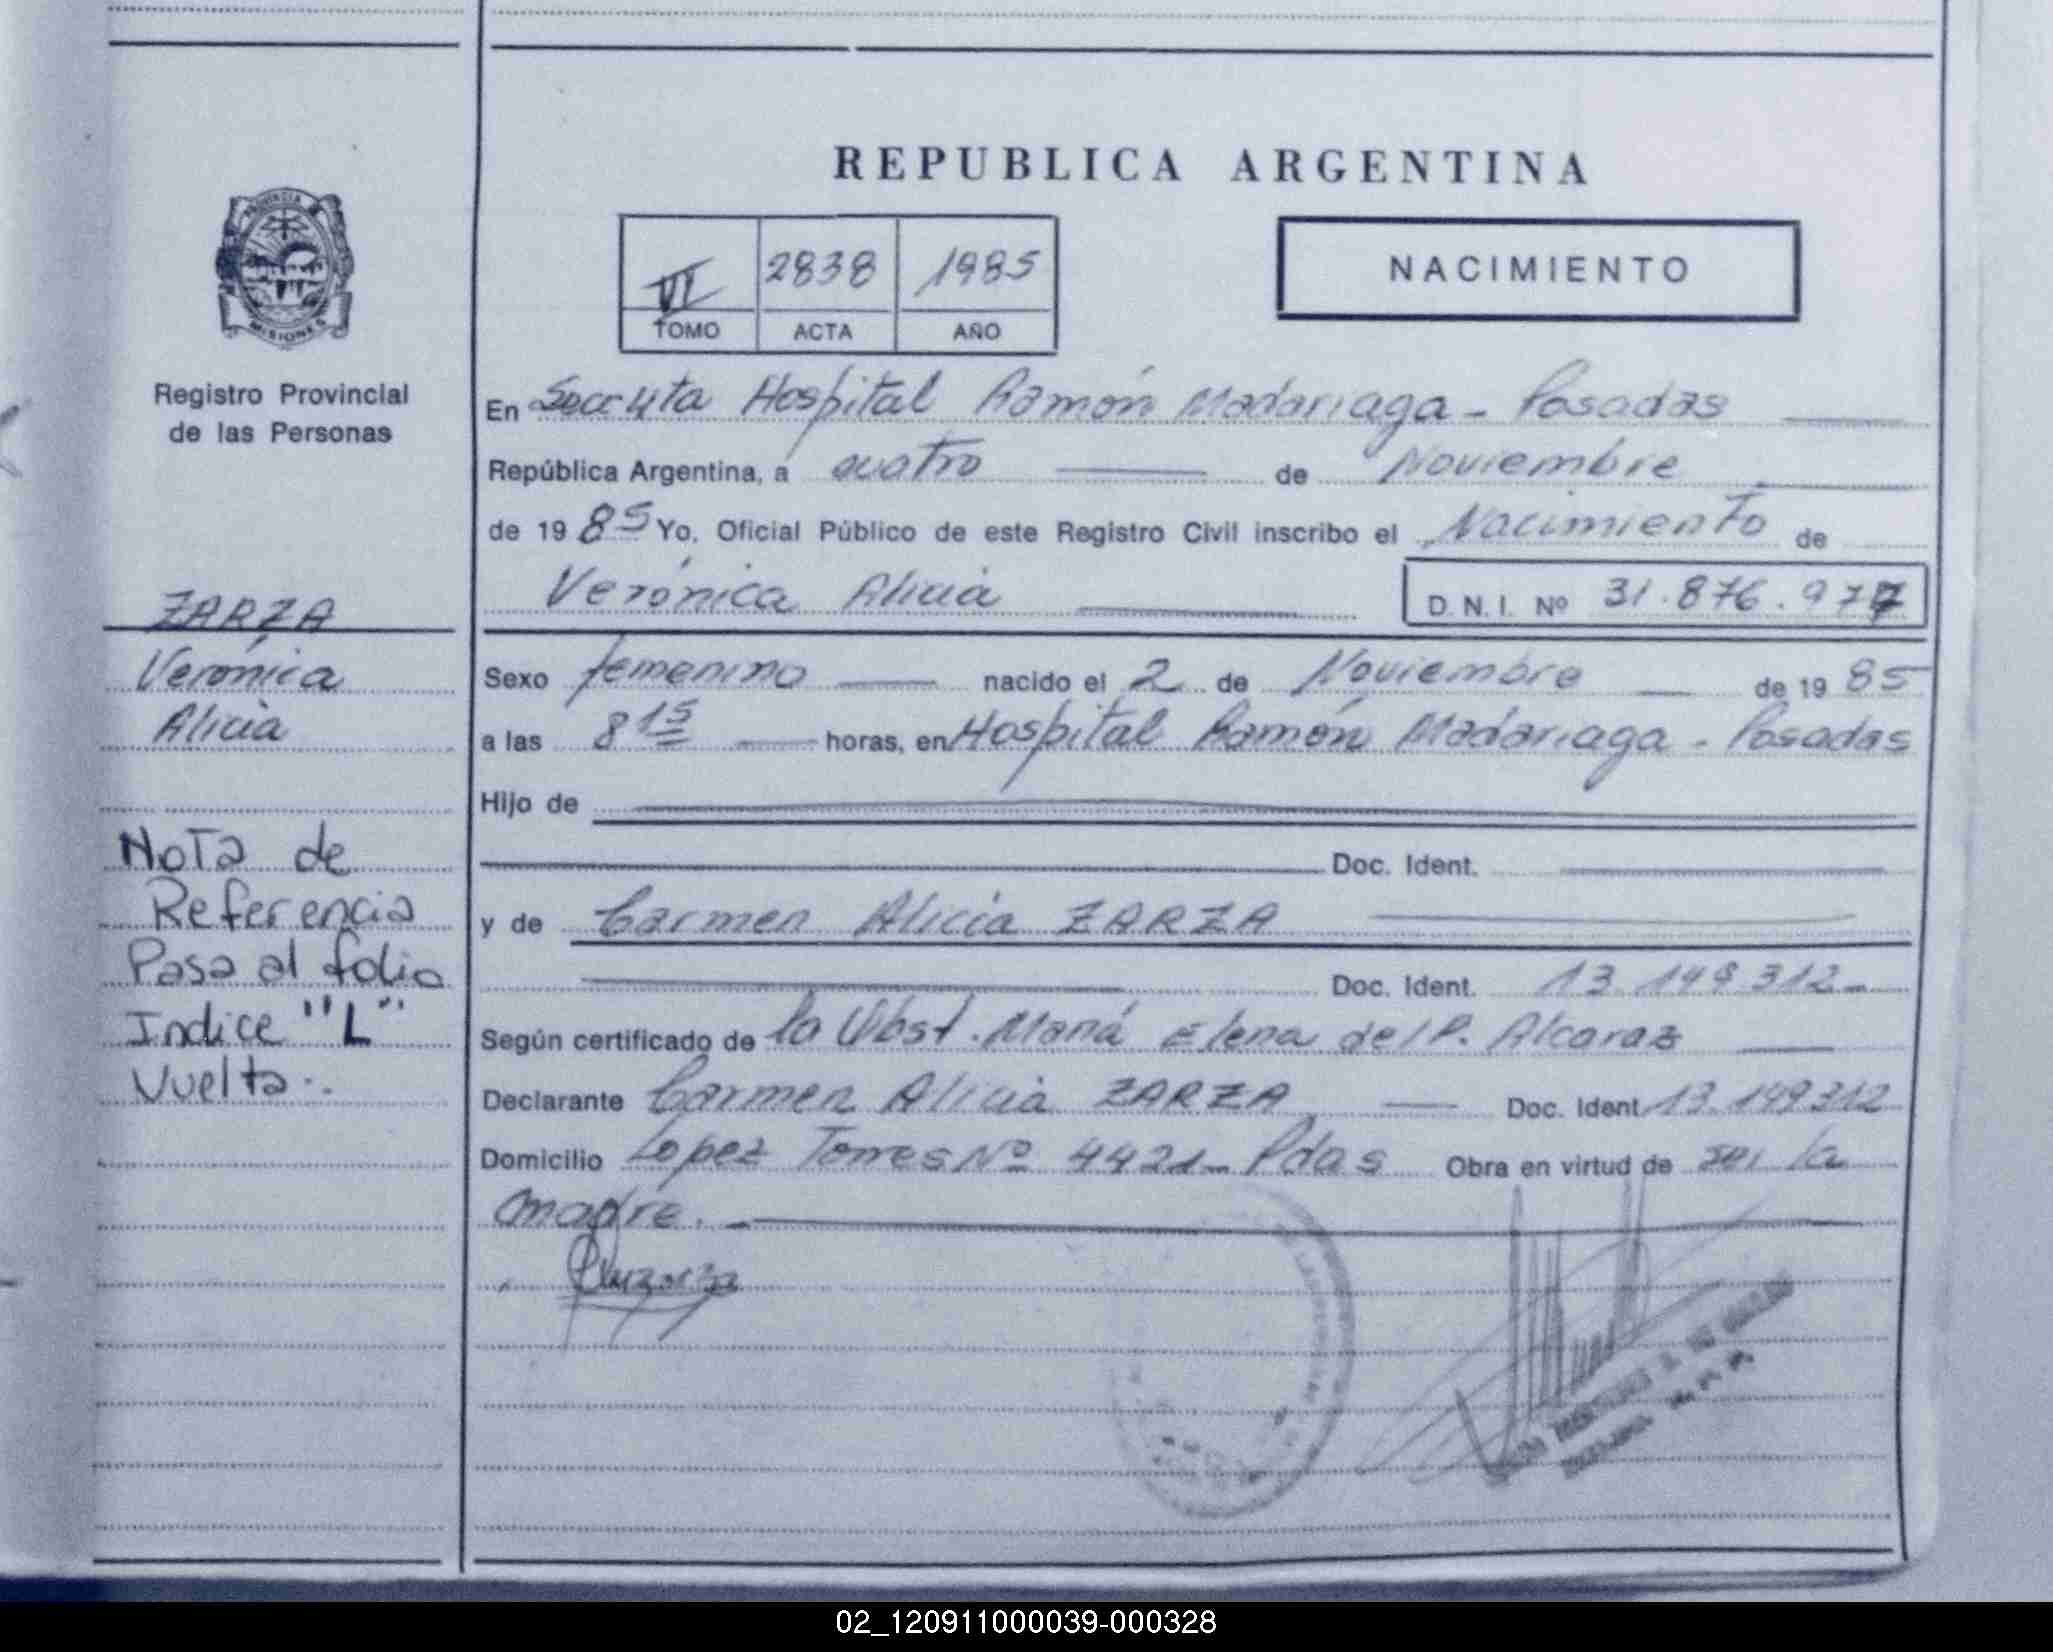 REPUBLICA ARGENTINA
VI 2838 1985
TOMO ACTA AÑO
NACIMIENTO
PROVINCIA DE
MISIONES
Registro Provincial
de las Personas
En Secc 4ta Hospital Ramón Madariaga - Posadas
República Argentina, a cuatro de Noviembre
de 19 85 Yo, Oficial Público de este Registro Civil inscribo el Nacimiento de
Verónica Alicia D. N. I. Nº 31.876.977
ZARZA
Verónica
Alicia
Sexo femenino nacido el 2 de Noviembre de 19 85
a las 8 15 horas, en Hospital Ramón Madariaga - Posadas
Hijo de
Doc. Ident.
y de Carmen Alicia ZARZA
Doc. Ident. 13.149.312-
Según certificado de la Obst. María Elena del P. Alcaraz
Declarante Carmen Alicia ZARZA Doc. Ident 13.149312
Domicilio Lopez Torres Nº 4421- Pdas Obra en virtud de ser la
madre.
Nota de
Referencia
Pasa al folio
Indice "L"
Vuelta.
02_120911000039-000328